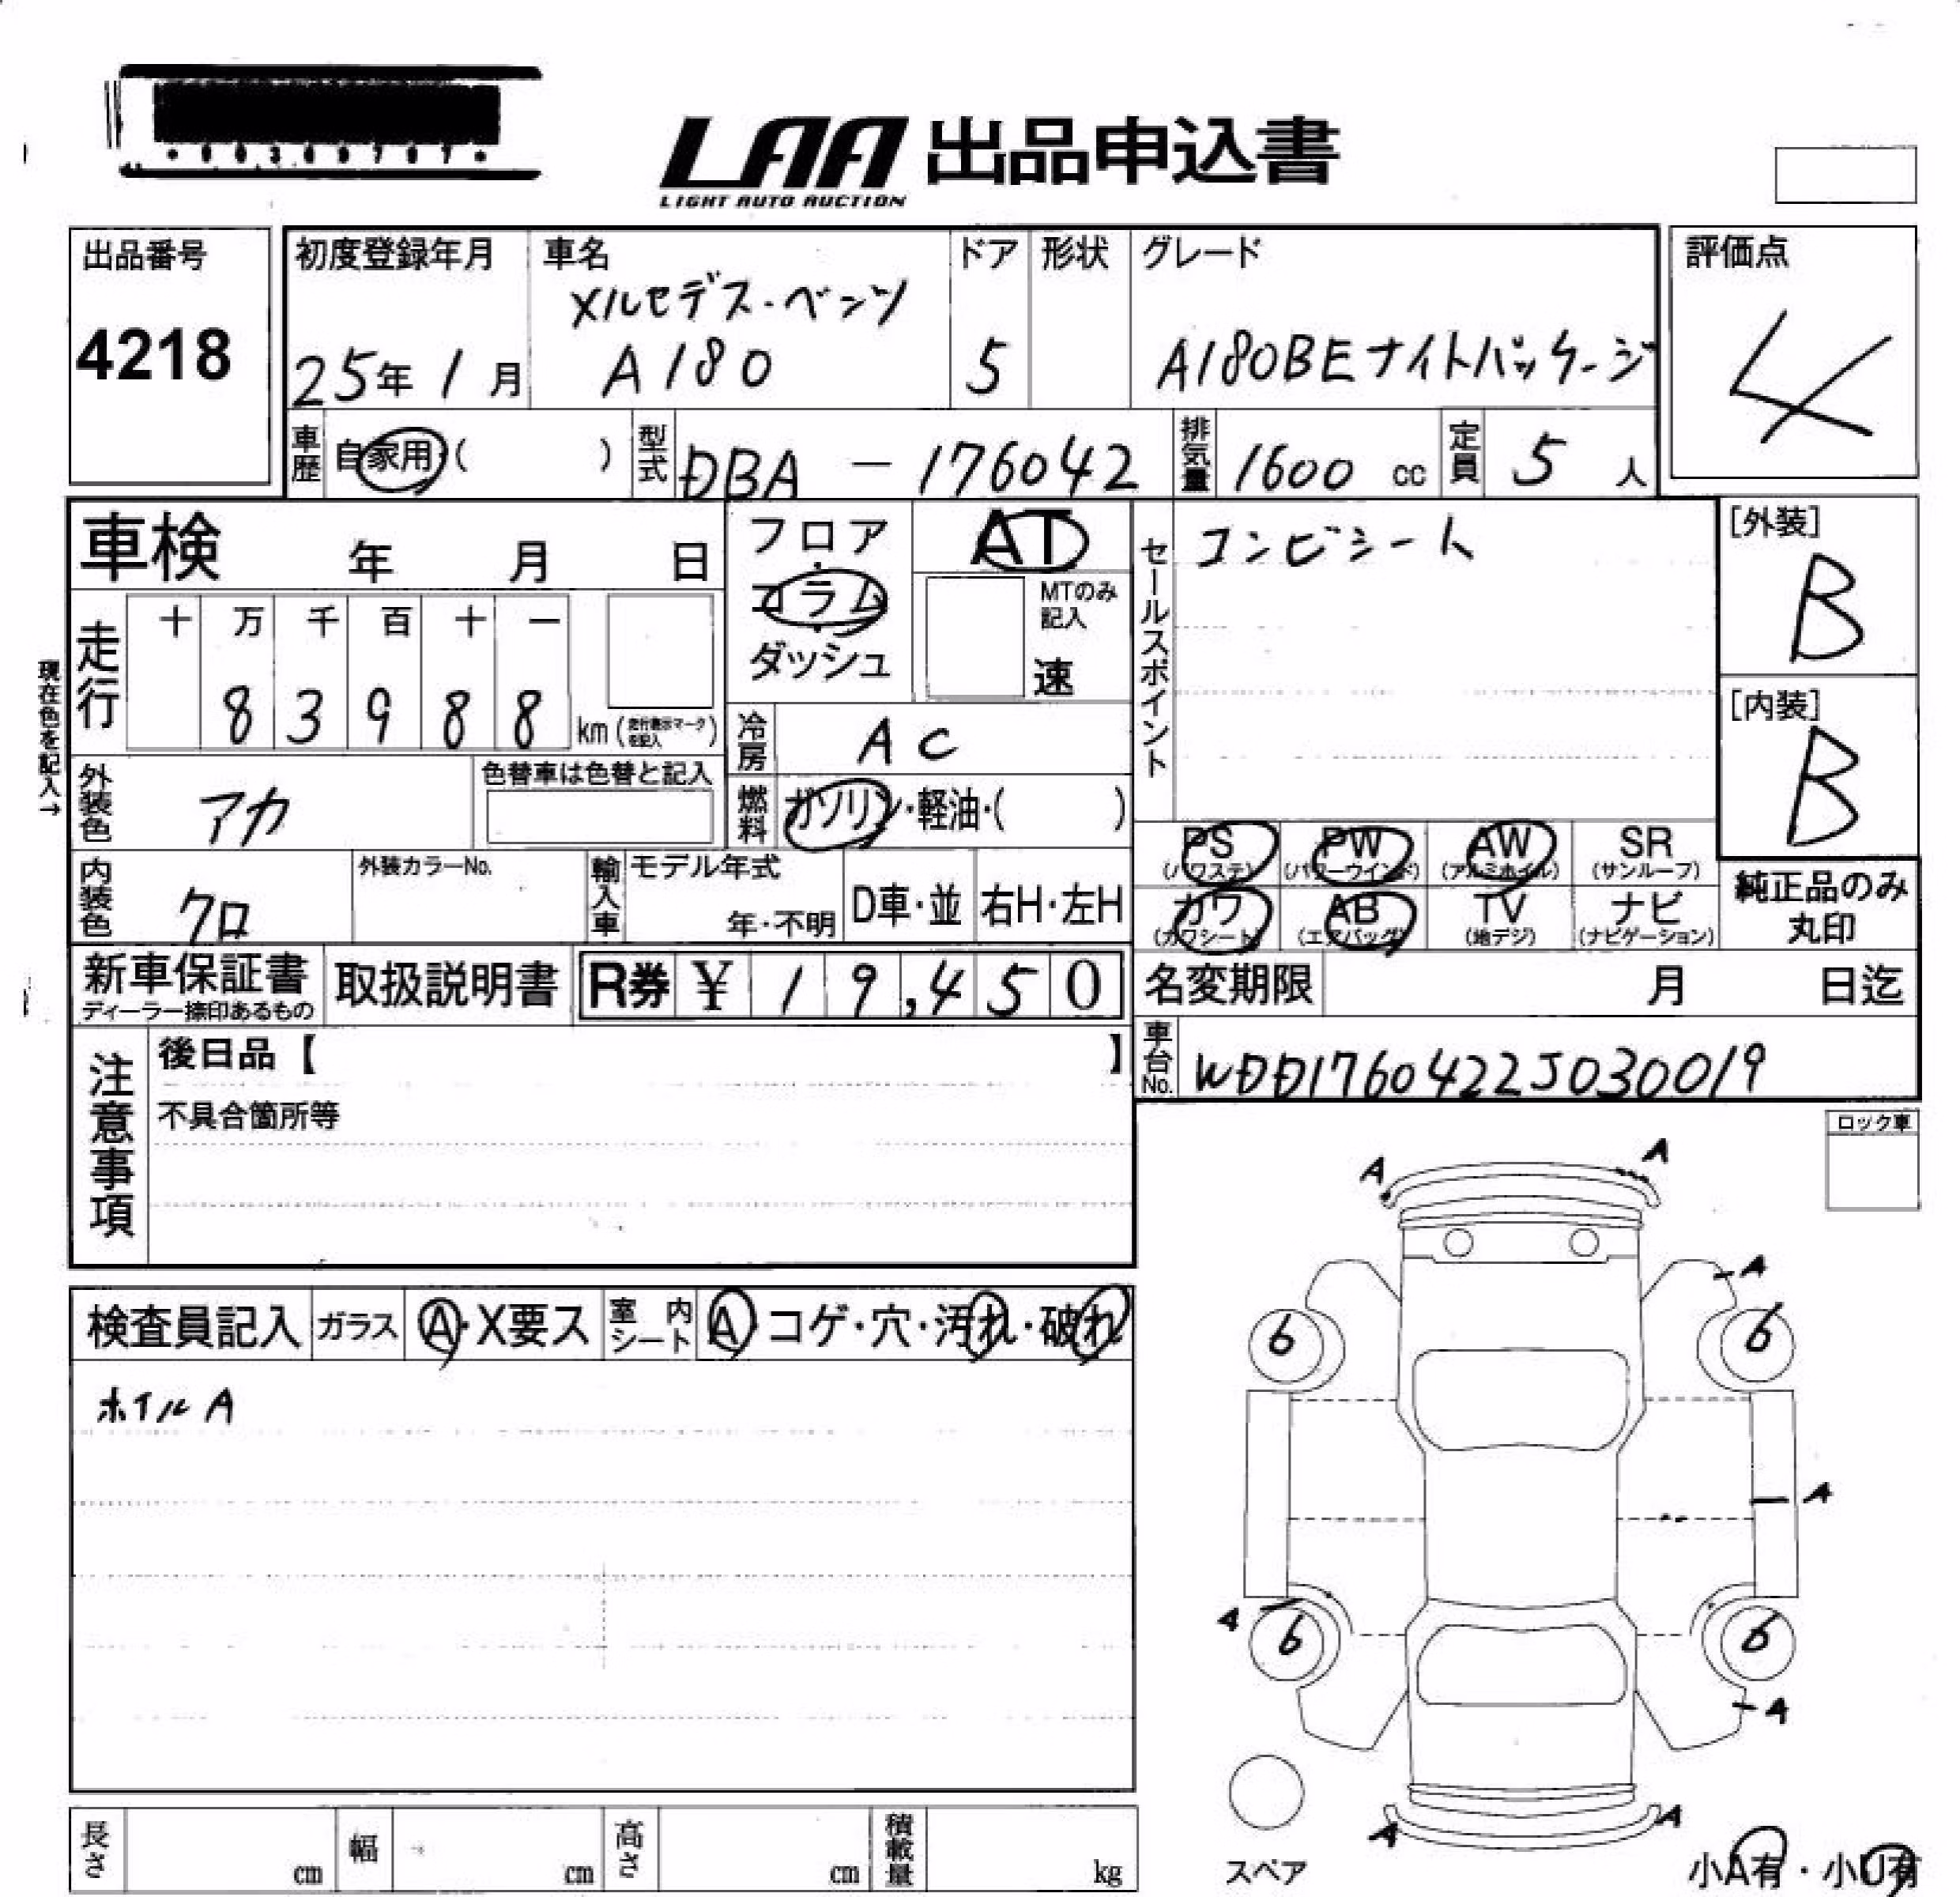 LAA 出品申込書
LIGHT AUTO AUCTION
出品番号
4218
初度登録年月
25年 1月
車名
メルセデス・ベンツ
A180
ドア
5
形状
グレード
A180BEナイトパッケージ
評価点
4
車歴 自家用・( )
型式 DBA - 176042
排気量 1600 cc
定員 5 人
車検 年 月 日
フロア・コラム・ダッシュ
AT
MTのみ記入
速
セールスポイント
コンビシート
[外装]
B
[内装]
B
現在色を記入→
走行
十 万 千 百 十 一
8 3 9 8 8 km (走行表示マークを記入)
冷房 AC
外装色 アカ
色替車は色替と記入
燃料 ガソリン・軽油・( )
PS (パワステ)
PW (パワーウインド)
AW (アルミホイル)
SR (サンルーフ)
カワ (カワシート)
AB (エアバッグ)
TV (地デジ)
ナビ (ナビゲーション)
純正品のみ
丸印
内装色 クロ
外装カラーNo.
輸入車
モデル年式
年・不明
D車・並
右H・左H
新車保証書
ディーラー捺印あるもの
取扱説明書
R券 ¥ 19,450
名変期限 月 日迄
車台No. WDD1760422J030019
注意事項
後日品【 】
不具合箇所等
ロック車
検査員記入
ガラス A・X要ス
室内シート A・コゲ・穴・汚れ・破れ
ホイルA
A
A
A
6
6
A
A
6
6
A
A
A
スペア
小A有・小U有
長さ cm
幅 cm
高さ cm
積載量 kg